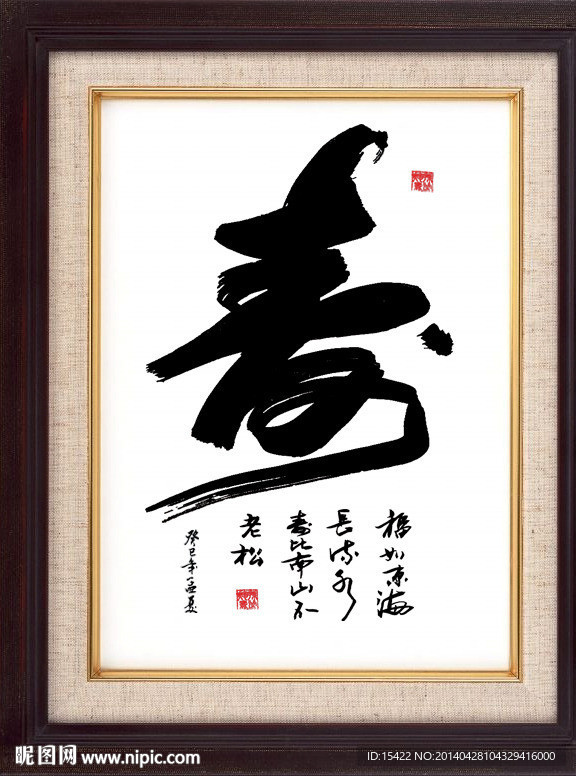 寿
福如东海
长流水
寿比南山不
老松
癸巳年孟夏
昵图网 www.nipic.com
ID:15422 NO:20140428104329416000